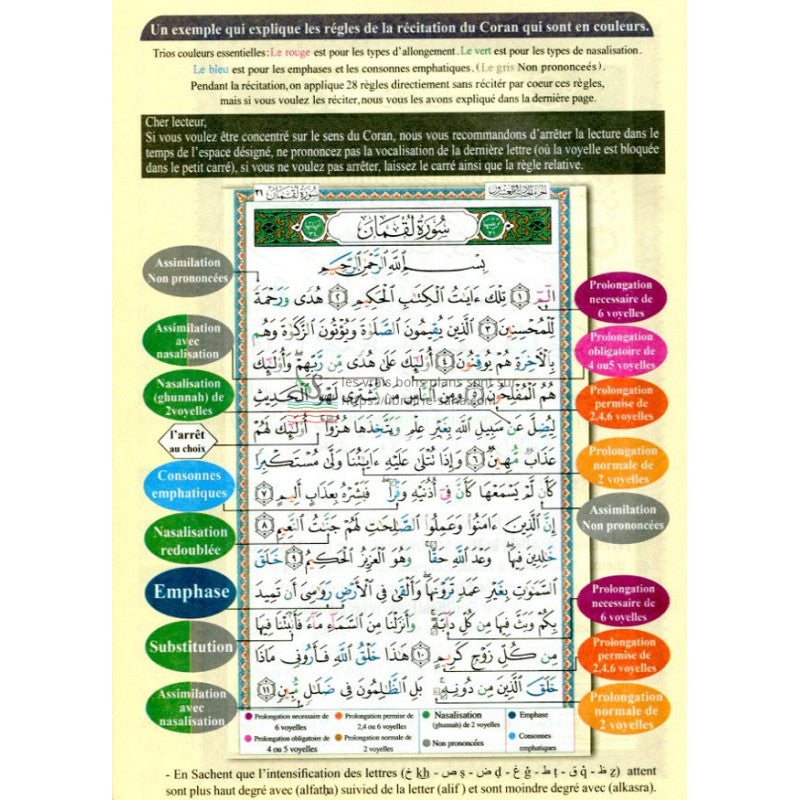 Un exemple qui explique les régles de la récitation du Coran qui sont en couleurs.
Trios couleurs essentielles:Le rouge est pour les types d'allongement.Le vert est pour les types de nasalisation.
Le bleu est pour les emphases et les consonnes emphatiques.(Le gris Non prononceés).
Pendant la récitation,on applique 28 règles directement sans récité par coeur ces règles,
mais si vous voulez les réciter,nous vous les avons expliqué dans la dernière page.
Cher lecteur,
Si vous voulez être concentré sur le sens du Coran, nous vous recommandons d'arrêter la lecture dans le
temps de l'espace désigné, ne prononcez pas la vocalisation de la dernière lettre (où la voyelle est bloquée
dans le petit carré), si vous ne voulez pas arrêter, laissez le carré ainsi que la règle relative.
سُورَةُ لُقْمَان ٣١
سُورَةُ لُقْمَان
بِسْمِ اللَّهِ الرَّحْمَٰنِ الرَّحِيمِ
الٓمٓ ١ تِلْكَ ءَايَٰتُ الْكِتَٰبِ الْحَكِيمِ ٢ هُدًى وَرَحْمَةً
لِّلْمُحْسِنِينَ ٣ الَّذِينَ يُقِيمُونَ الصَّلَوٰةَ وَيُؤْتُونَ الزَّكَوٰةَ وَهُم
بِالْءَاخِرَةِ هُمْ يُوقِنُونَ ٤ أُوْلَٰٓئِكَ عَلَىٰ هُدًى مِّن رَّبِّهِمْ وَأُوْلَٰٓئِكَ
هُمُ الْمُفْلِحُونَ ٥ وَمِنَ النَّاسِ مَن يَشْتَرِى لَهْوَ الْحَدِيثِ
لِيُضِلَّ عَن سَبِيلِ اللَّهِ بِغَيْرِ عِلْمٍ وَيَتَّخِذَهَا هُزُوًا أُوْلَٰٓئِكَ لَهُمْ
عَذَابٌ مُّهِينٌ ٦ وَإِذَا تُتْلَىٰ عَلَيْهِ ءَايَٰتُنَا وَلَّىٰ مُسْتَكْبِرًا
كَأَن لَّمْ يَسْمَعْهَا كَأَنَّ فِىٓ أُذُنَيْهِ وَقْرًا فَبَشِّرْهُ بِعَذَابٍ أَلِيمٍ ٧
إِنَّ الَّذِينَ ءَامَنُوا وَعَمِلُوا الصَّٰلِحَٰتِ لَهُمْ جَنَّٰتُ النَّعِيمِ ٨
خَٰلِدِينَ فِيهَا وَعْدَ اللَّهِ حَقًّا وَهُوَ الْعَزِيزُ الْحَكِيمُ ٩ خَلَقَ
السَّمَٰوَٰتِ بِغَيْرِ عَمَدٍ تَرَوْنَهَا وَأَلْقَىٰ فِى الْأَرْضِ رَوَٰسِىَ أَن تَمِيدَ
بِكُمْ وَبَثَّ فِيهَا مِن كُلِّ دَآبَّةٍ وَأَنزَلْنَا مِنَ السَّمَآءِ مَآءً فَأَنۢبَتْنَا فِيهَا
مِن كُلِّ زَوْجٍ كَرِيمٍ ١٠ هَٰذَا خَلْقُ اللَّهِ فَأَرُونِى مَاذَا
خَلَقَ الَّذِينَ مِن دُونِهِ بَلِ الظَّٰلِمُونَ فِى ضَلَٰلٍ مُّبِينٍ ١١
les vrais bons plans sont sur
Assimilation
Non prononcées
Assimilation
avec
nasalisation
Nasalisation
(ghunnah) de
2voyelles
l'arrêt
au choix
Consonnes
emphatiques
Nasalisation
redoublée
Emphase
Substitution
Assimilation
avec
nasalisation
Prolongation
necessaire de
6 voyelles
Prolongation
obligatoire de
4 ou5 voyelles
Prolongation
permise de
2,4,6 voyelles
Prolongation
normale de
2 voyelles
Assimilation
Non prononcées
Prolongation
necessaire de
6 voyelles
Prolongation
permise de
2,4,6 voyelles
Prolongation
normale de
2 voyelles
Prolongation necessaire de
6 voyelles
Prolongation obligatoire de
4 ou 5 voyelles
Prolongation permise de
2,4 ou 6 voyelles
Prolongation normale de
2 voyelles
Nasalisation
(ghunnah) de 2 voyelles
Non prononcées
Emphase
Consonnes
emphatiques
- En Sachent que l'intensification des lettres (خ kh - ص ṣ - ض ḍ - غ ġ - ط ṭ - ق q - ظ ẓ) attent
sont plus haut degré avec (alfatḥa) suivied de la lettre (alif ) et sont moindre degré avec (alkasra).